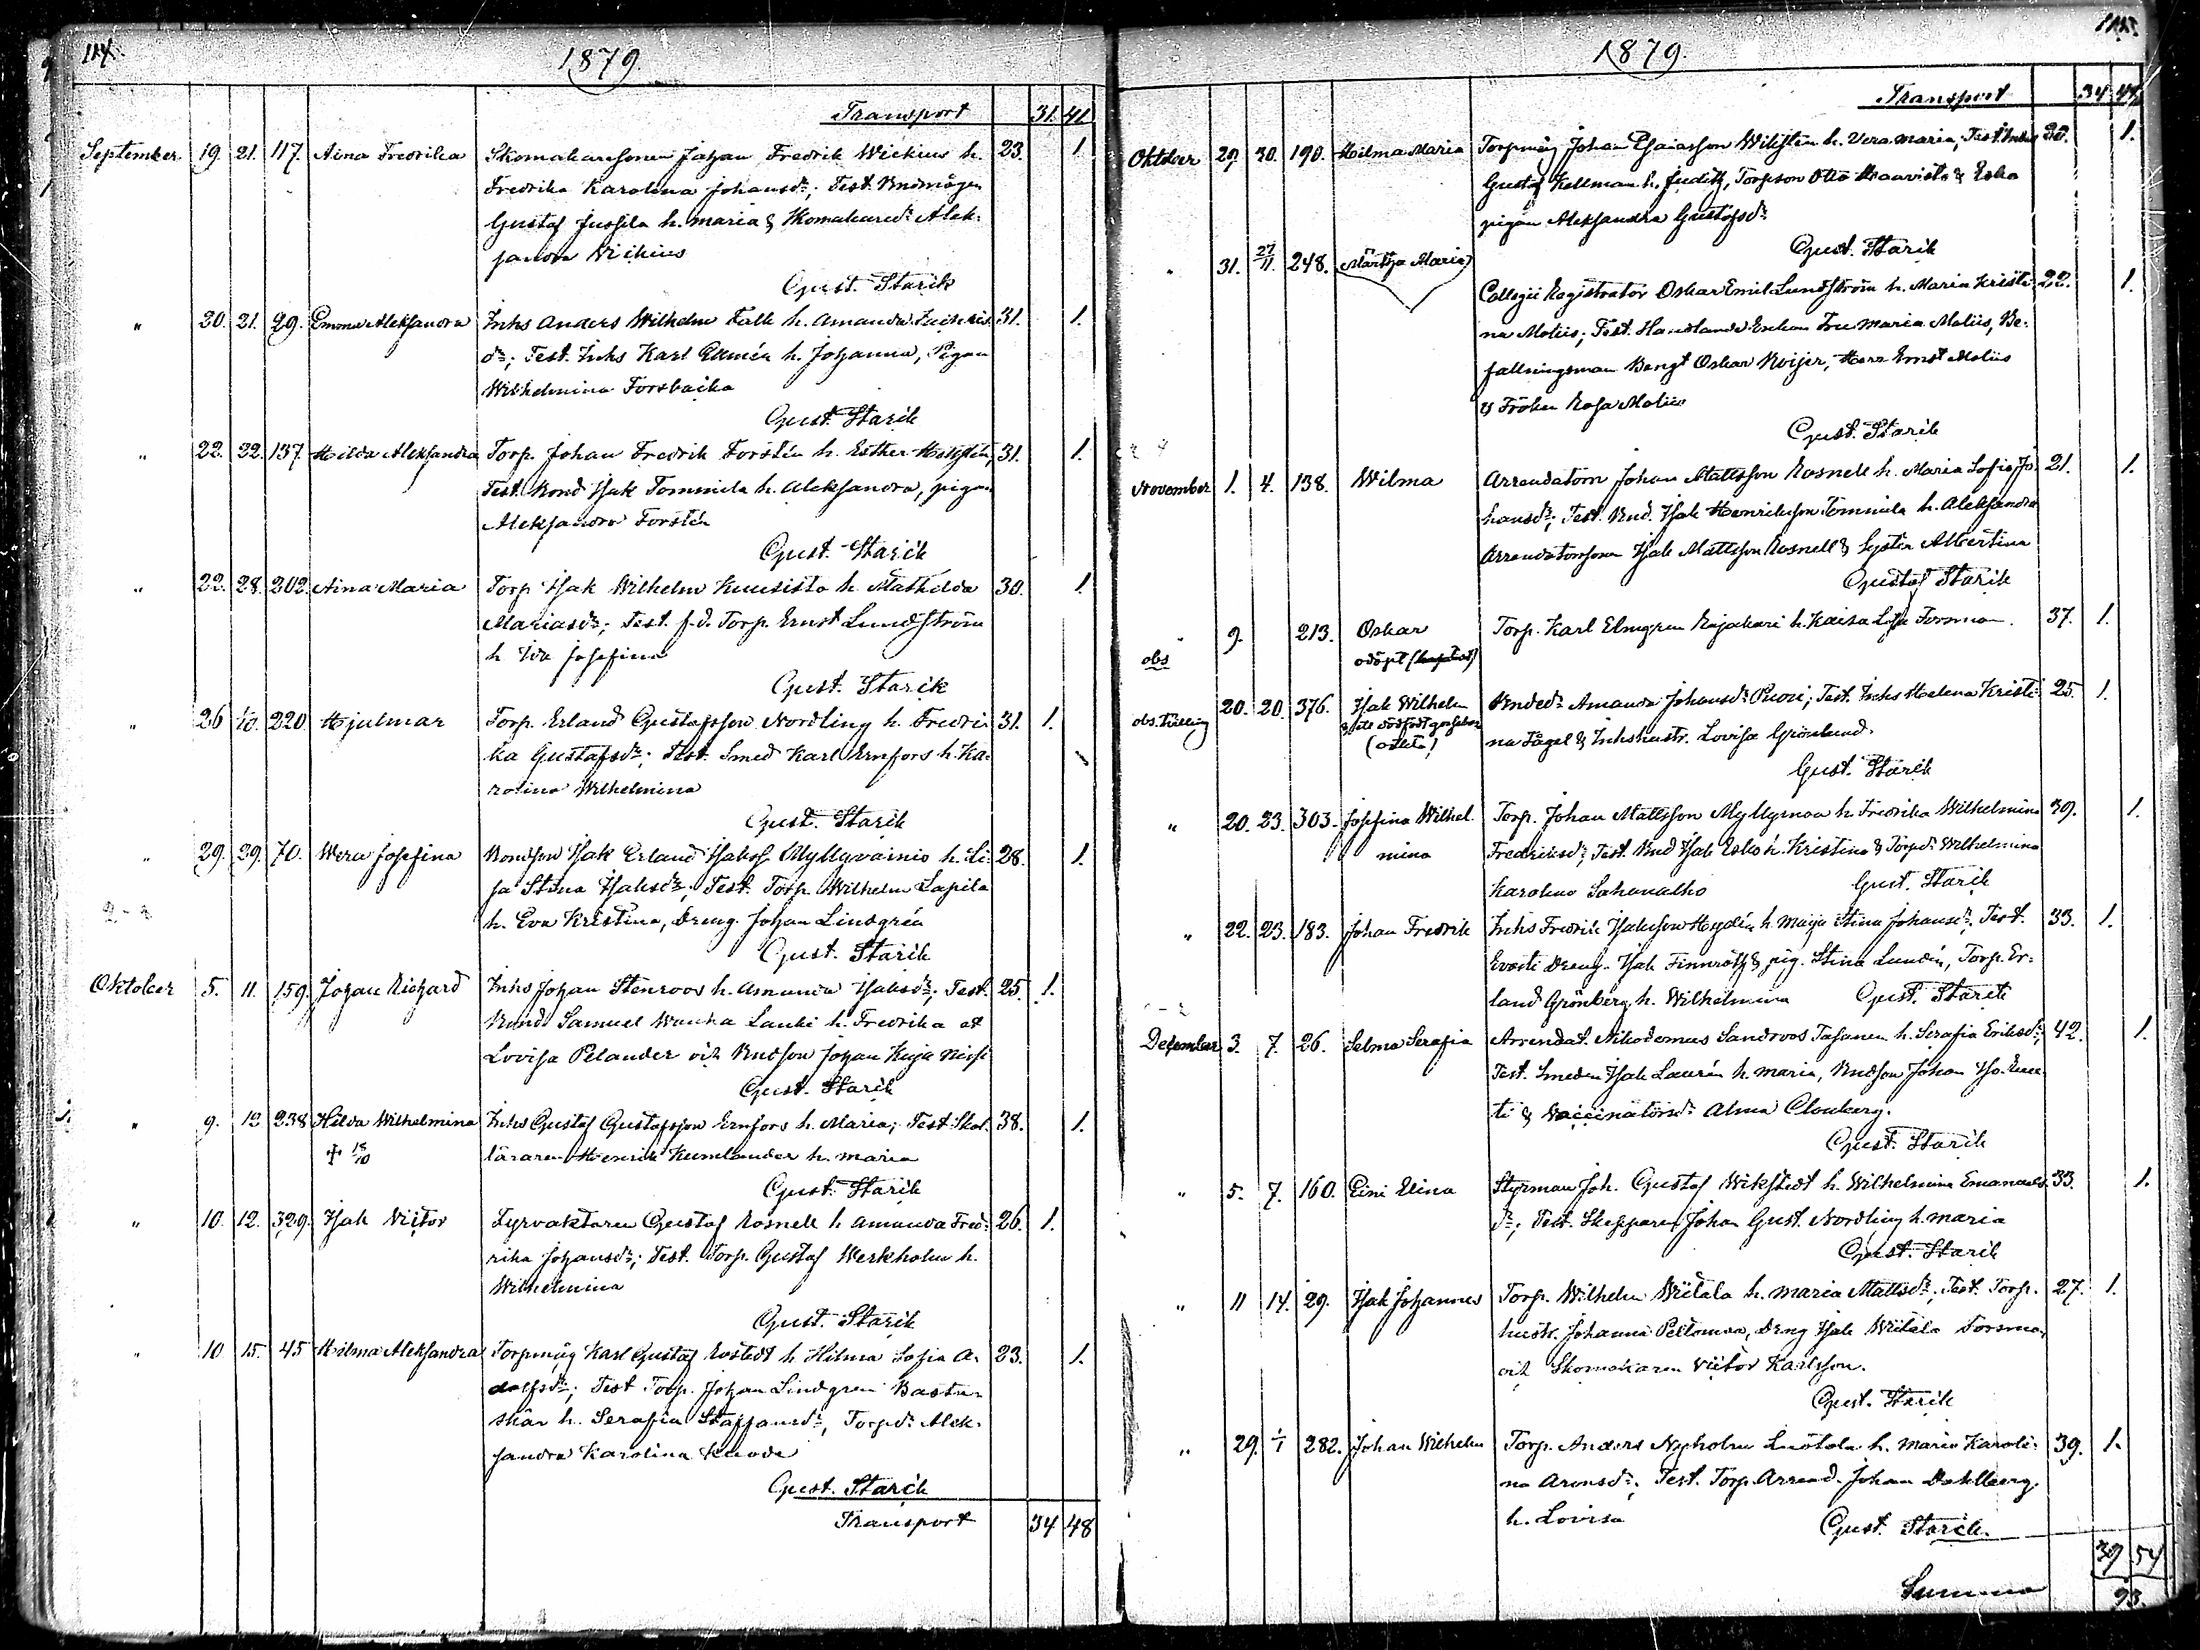 114.
1879.
Transport 31. 41
September 19. 21. 117. Aina Fredrika Skomakaresonen Johan Fredrik Wickius h. 23. 1
Fredrika Karolina Johansdr; Test. Bndmågen
Gustaf Jussila h. Maria & Skomakaredr Alek-
sandra Wickius
Gust. Starik
" 20. 21. 29. Emma Aleksandra Inhs Anders Wilhelm Falk h. Amanda 31. 1.
dr; Test. Inhs Karl Ekmén h. Johanna, Pigan
Wilhelmina Forsbacka
Gust. Starik
" 22. 22. 137. Hilda Aleksandra Torp. Johan Fredrik Forstén h. Esther 31. 1.
Test. Bond Isak Tommila h. Aleksandra, pigan
Aleksandra Forstén
Gust. Starik
" 22. 28. 202. Aina Maria Torp Isak Wilhelm Kuusisto h. Mathilda 30. 1.
Mariasdr; Test. f.d. Torp. Ernst Lundström
h Ida Josefina
Gust. Starik
" 26 1/10. 220. Hjalmar Torp. Erland Gustafsson Nordling h. Fredri- 31. 1.
ka Gustafsdr; Test. Smed Karl Ernfors h. Ka-
rolina Wilhelmina
Gust. Starik
" 29. 29. 70. Wera Josefina Bondson Isak Erland Isakss. Myllyvainio h. Li- 28. 1.
sa Stina Isaksdr; Test. Torp. Wilhelm Lapila
h. Eva Kristina, Dreng. Johan Lindgrén
Gust. Starik
Oktober 5. 11. 159. Johan Richard Inhs Johan Stenroos h. Amanda Isaksdr; Test. 25. 1.
Bond. Samuel Wanha Lauki h. Fredrika at
Lovisa Pelander och Bndson Johan Kuja Nissi
Gust. Starik
" 9. 12 238 Hilda Wilhelmina Inhs Gustaf Gustafsson Ernfors h. Maria; Test Skol- 38. 1.
+ 18/10 läraren Henrik Kumlander h. Maria
Gust. Starik
" 10. 12. 329. Isak Victor Fyrvaktaren Gustaf Rosnell h Amanda Fred- 26. 1.
rika Johansdr; Test. Torp. Gustaf Werkholm h.
Wilhelmina
Gust. Starik
" 10 15. 45 Hilma Aleksandra Torpmåg Karl Gustaf Rostedt h Hilma Sofia A- 23. 1.
dolfsdr; Test Torp. Johan Lindgren Bastu-
skär h. Serafia Staffansdr, Torpdr Alek-
sandra Karolina
Gust. Starik
Transport 34 48
115.
1879.
Transport 34 48
Oktober 29. 30. 190. Hilma Maria Torpmåg Johan Esaiasson Wilsten h. Vera Maria, Test. 1.
Gustaf Kellman h. Judith, Torpson Otto Haavisto & Esko
pigan Aleksandra Gustafsdr
Gust. Starik
" 31. 27/11 248. Märtha Maria
Collegii Registrator Oskar Emil Lundström h. Maria Kristi- 22. 1.
na Moliis; Test. Handlande Enkan Fru Maria Moliis, Be-
fallningsman Bengt Oskar Roijer, Herr Ernst Molius
& Fröken Rosa Molius
Gust. Starik
November 1. 4. 138. Wilma Arrendatorn Johan Mattsson Rosnell h. Maria Sofia Jo- 21. 1.
hansdr; Test. Bnd. Isak Henriksson Tommila h. Aleksandra
Arrendatorsson Isak Mattsson Rosnell & Syster Albertina
Gustaf Starik
" 9. 213. Oskar Torp. Karl Elmgren Rajakari h. Kaisa Lisa Forsman. 37. 1.
obs odöpt
20. 20. 376. Isak Wilhelm Bndedr Amanda Johansdr Pursi; Test. Inhs Helena Kristi- 25. 1.
obs. tvilling na Fågel & Inhshustr. Lovisa Grönlund.
(oäkta)
Gust. Starik
" 20. 23. 303. Josefina Wilhel- Torp. Johan Mattsson Myllymaa h. Fredrika Wilhelmina 39. 1.
mina Fredriksdr; Test. Bnd Isak Esko h. Kristina & Torpdr Wilhelmina
Karolina Sahanalho Gust. Starik
" 22. 23. 183. Johan Fredrik Inhs Fredrik Isaksson Hydén h. Maija Stina Johansdr, Test. 33. 1.
Dreng. Isak & pig. Stina Lundén, Torp. Er-
land Grönberg h. Wilhelmina Gust. Starik
December 3. 7. 26. Selma Serafia Arrendat. Nikodemus Sandroos Tasanen h. Serafia Eriksdr; 42. 1.
Test. Smeden Isak Laurén h. Maria, Bndson Johan
& Vaccinatörsdr Alma Clonberg.
Gust. Starik
" 5. 7. 160. Eini Elina Styrman Joh. Gustaf Wikstedt h. Wilhelmina Emanuels- 33. 1.
dr; Test. Skepparen Johan Gust. Nordling h. Maria
Gust. Starik
" 11 14. 29. Isak Johannes Torp. Wilhelm Wiitala h. Maria Mattsdr; Test. Torp. 27. 1.
hustr. Johanna Peltomaa, Dreng Isak Wiitala
och Skomakaren Victor Karlsson.
Gust. Starik
" 29. 1/1 282. Johan Wilhelm Torp. Anders Nyholm h. Maria Karoli- 39. 1.
na Aronsdr; Test. Torp. Arrend. Johan Dahlberg.
h. Lovisa Gust. Starik
39 54
Summa 93.